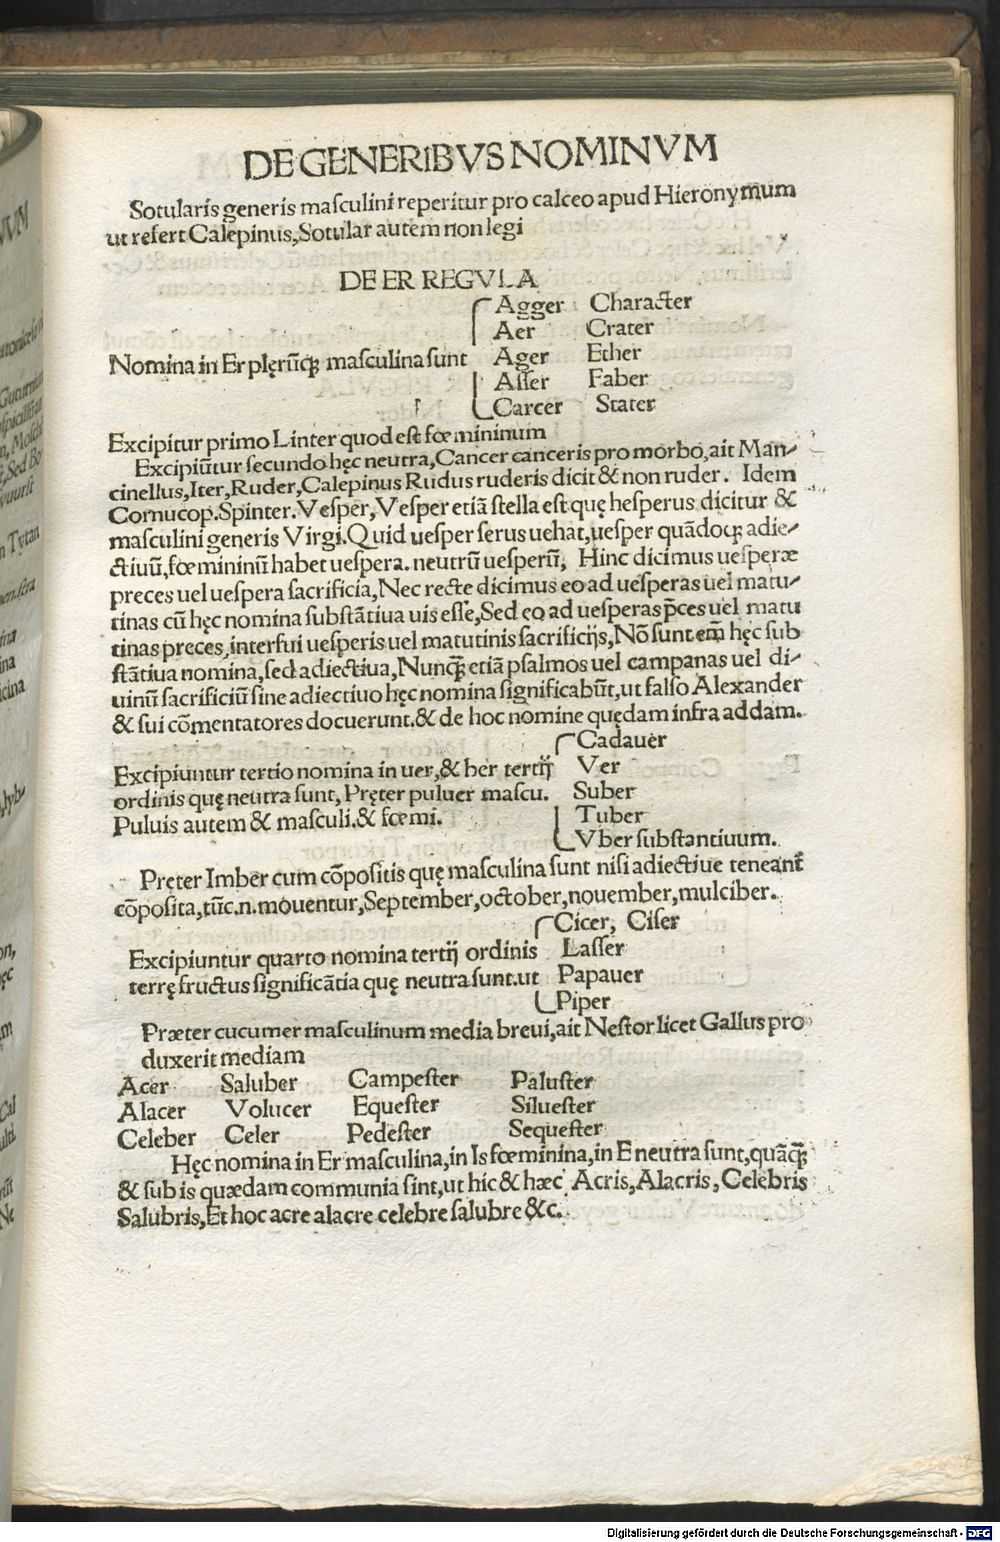 DE GENERIBVS NOMINVM
Sotularis generis maſculini reperitur pro calceo apud Hieronymum
ut refert Calepinus, Sotular autem non legi
DE ER REGVLA
Agger Character
Aer Crater
Nomina in Er plęrūꝗ maſculina sunt Ager Ether
Aſſer Faber
Carcer Stater
Excipitur primo Linter quod eſt fœmininum
Excipiūtur ſecundo hęc neutra, Cancer canceris pro morbo, ait Man⸗
cinellus, Iter, Ruder, Calepinus Rudus ruderis dicit & non ruder. Idem
Cornucop. Spinter. Veſper, Veſper etiā ſtella eſt quę heſperus dicitur &
maſculini generis Virgi. Quid ueſper ſerus uehat, ueſper quādoꝗ adie⸗
ctiuū, fœmininū habet ueſpera. neutrū ueſperū, Hinc dicimus ueſperæ
preces uel ueſpera ſacrificia, Nec recte dicimus eo ad ueſperas uel matu⸗
tinas cū hęc nomina ſubſtātiua uis eſſe, Sed eo ad ueſperas p̄ces uel matu
tinas preces, interfui ueſperis uel matutinis ſacrificijs, Nō ſunt em̄ hęc ſub
ſtātiua nomina, ſed adiectiua, Nunꝗ̄ etiā pſalmos uel campanas uel di⸗
uinū ſacrificiū ſine adiectiuo hęc nomina ſignificabūt, ut falſo Alexander
& ſui cōmentatores docuerunt. & de hoc nomine quędam infra addam.
Cadauer
Excipiuntur tertio nomina in uer, & ber tertij Ver
ordinis quę neutra ſunt, Pręter puluer maſcu. Suber
Puluis autem & maſculi. & fœmi. Tuber
Vber ſubſtantiuum.
Pręter Imber cum cōpoſitis quę maſculina ſunt niſi adiectiue teneant̄
cōpoſita, tūc. n. mouentur, September, october, nouember, mulciber.
Cicer, Ciſer
Excipiuntur quarto nomina tertij ordinis Laſſer
terrę fructus ſignificātia quę neutra sunt. ut Papauer
Piper
Præter cucumer maſculinum media breui, ait Neſtor licet Gallus pro
duxerit mediam
Acer Saluber Campeſter Paluſter
Alacer Volucer Equeſter Silueſter
Celeber Celer Pedeſter Sequeſter
Hęc nomina in Er maſculina, in Is fœminina, in E neutra ſunt, quāꝗ̄
& ſub is quædam communia ſint, ut hic & hæc Acris, Alacris, Celebris
Salubris, Et hoc acre alacre celebre ſalubre &c.
Digitalisierung gefördert durch die Deutsche Forschungsgemeinschaft - DFG